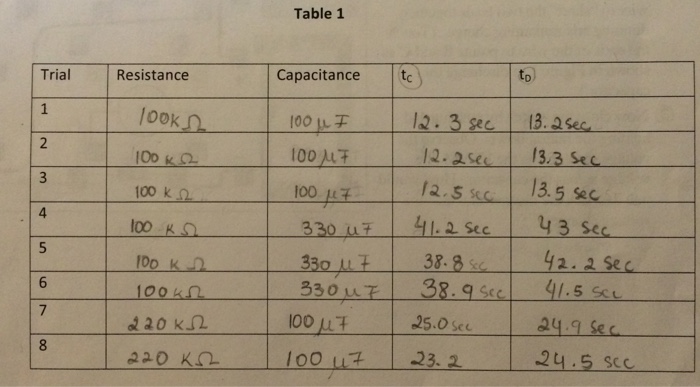 Table 1
Trial Resistance Capacitance tc tD
1 100kΩ 100 µF 12.3 sec 13.2 sec
2 100 kΩ 100 µF 12.2 sec 13.3 sec
3 100 kΩ 100 µF 12.5 sec 13.5 sec
4 100 kΩ 330 µF 41.2 sec 43 sec
5 100 kΩ 330 µF 38.8 sec 42.2 sec
6 100kΩ 330 µF 38.9 sec 41.5 sec
7 220 kΩ 100 µF 25.0 sec 24.9 sec
8 220 kΩ 100 µF 23.2 24.5 sec